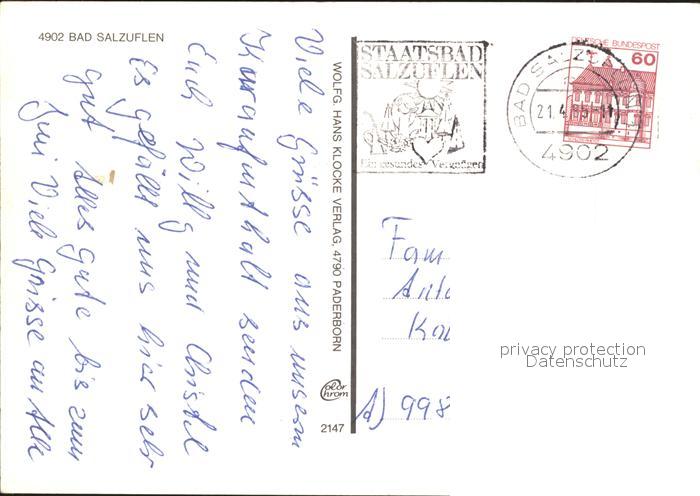 4902 BAD SALZUFLEN
Viele Grüsse aus unserm
Kuraufenthalt senden
Euch Willy und Christel
Es gefällt uns hier sehr
gut Alles gute bis zum
Juni Viele Grüsse an Alle
WOLFG. HANS KLOCKE VERLAG, 4790 PADERBORN
Color Chrom
2147
STAATSBAD
SALZUFLEN
Ein gesundes Vergnügen
BAD SALZUFLEN
21.4.85-11
4902
DEUTSCHE BUNDESPOST
60
Fam
A) 998
privacy protection
Datenschutz